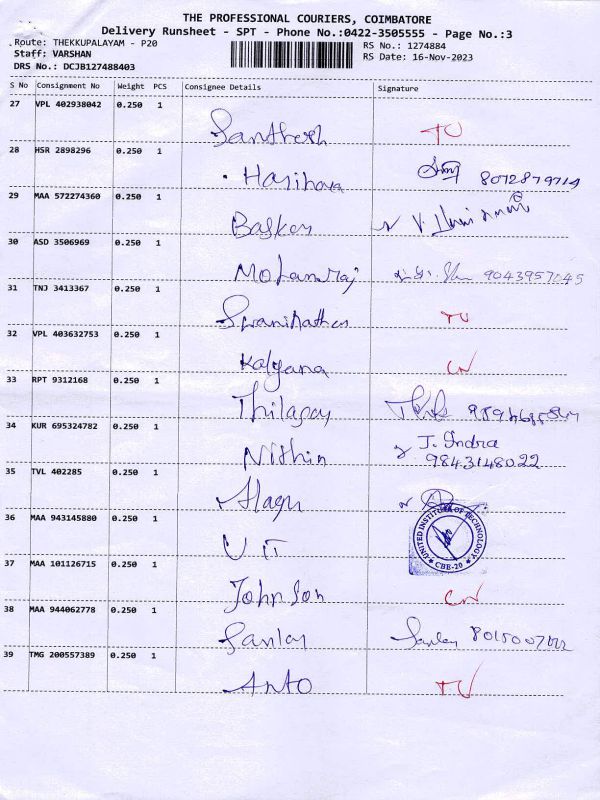 THE PROFESSIONAL COURIERS, COIMBATORE
Delivery Runsheet - SPT - Phone No.:0422-3505555 - Page No.:3
Route: THEKKUPALAYAM - P20
RS No.: 1274884
Staff: VARSHAN
RS Date: 16-Nov-2023
DRS No.: DCJB127488403
S No Consignment No Weight PCS Consignee Details Signature
27 VPL 402938042 0.250 1
Santhosh TU
28 HSR 2898296 0.250 1
Harihara
29 MAA 572274360 0.250 1
Baskar V.
30 ASD 3506969 0.250 1
Mohanraj 9043957045
31 TNJ 3413367 0.250 1
TU
32 VPL 403632753 0.250 1
Kalyana CN
33 RPT 9312168 0.250 1
Thilagay
34 KUR 695324782 0.250 1
Nithin J. Indra
9843148022
35 TVL 402285 0.250 1
Alagu
36 MAA 943145880 0.250 1
UIT UNITED INSTITUTE OF TECHNOLOGY
* CBE-20 *
37 MAA 101126715 0.250 1
Johnson CN
38 MAA 944062778 0.250 1
39 TMG 200557389 0.250 1
Anto TU